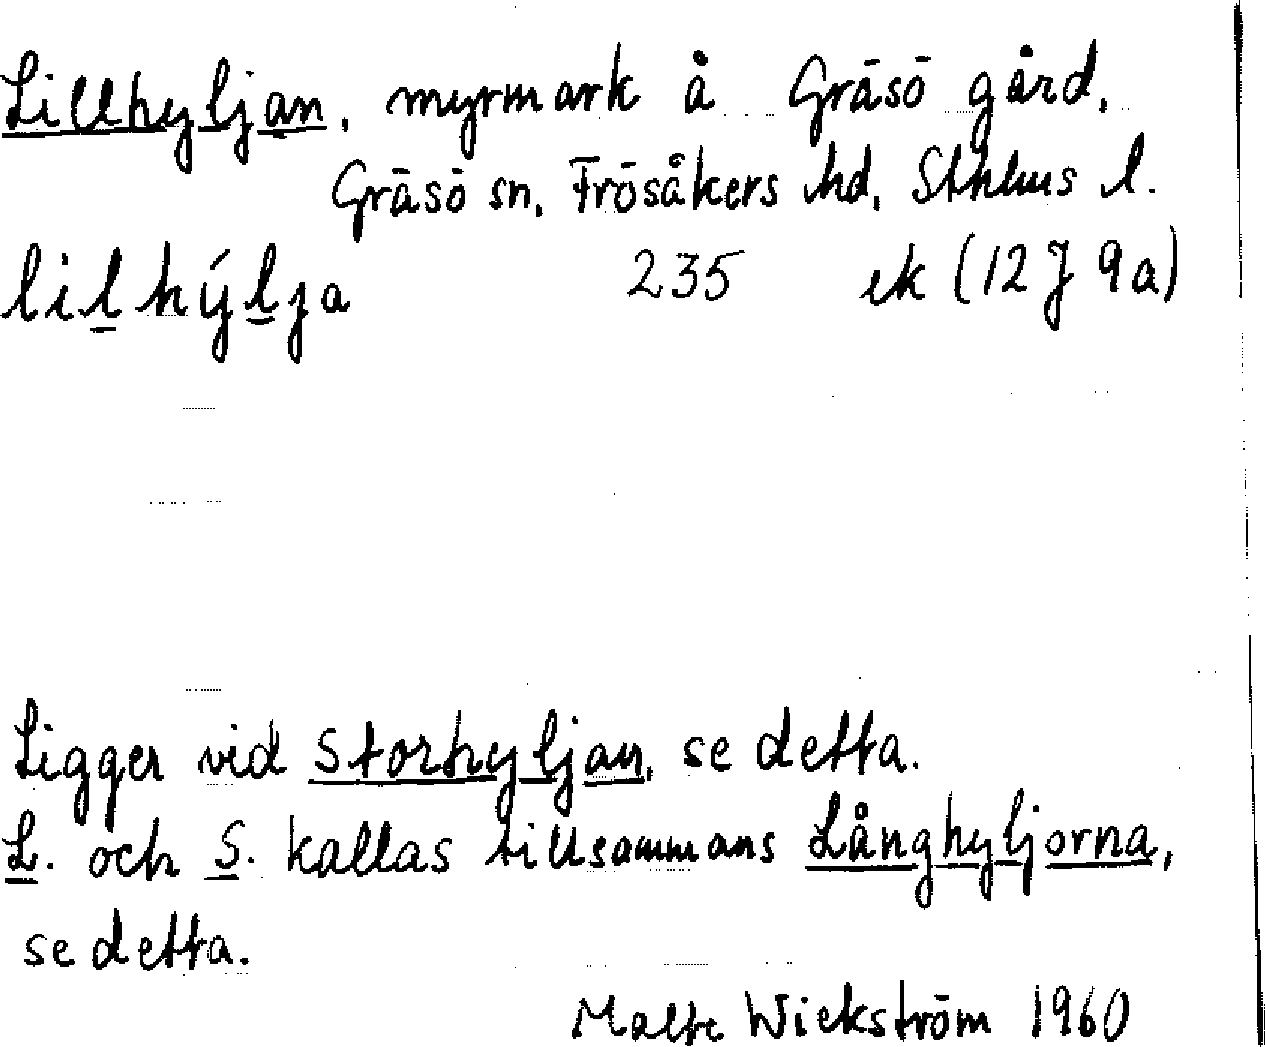 Lillhyljan, myrmark å Gräsö gård,
Gräsö sn, Frösåkers hd, Sthlms l.
lilhýlja 235 ek (12J 9a)
Ligger vid Storhyljan, se detta.
L. och S. kallas tillsammans Långhyljorna,
se detta.
Malte Wickström 1960